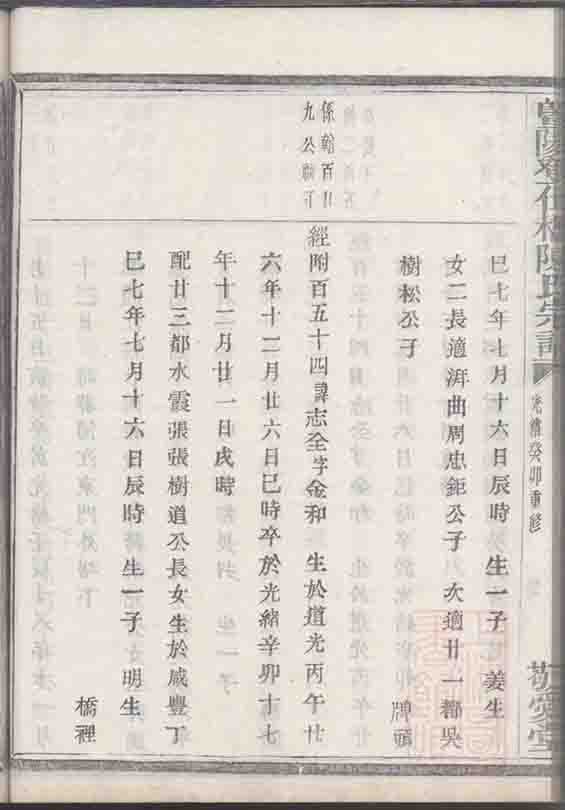 暨陽
陳氏宗譜
光緒癸卯重修
敬愛堂
巳七年七月十六日辰時 生一子 姜生
女二長適湃曲周忠鉅公子 次適廿一都吳
樹松公子 牌頭
係翰百廿
九公嗣子
經附百五十四諱志全字金和 生於道光丙午廿
六年十二月廿六日巳時卒於光緒辛卯十七
年十二月廿一日戌時
配廿三都水霞張張樹道公長女生於咸豐丁
巳七年七月十六日辰時 生一子 明生
橋裡